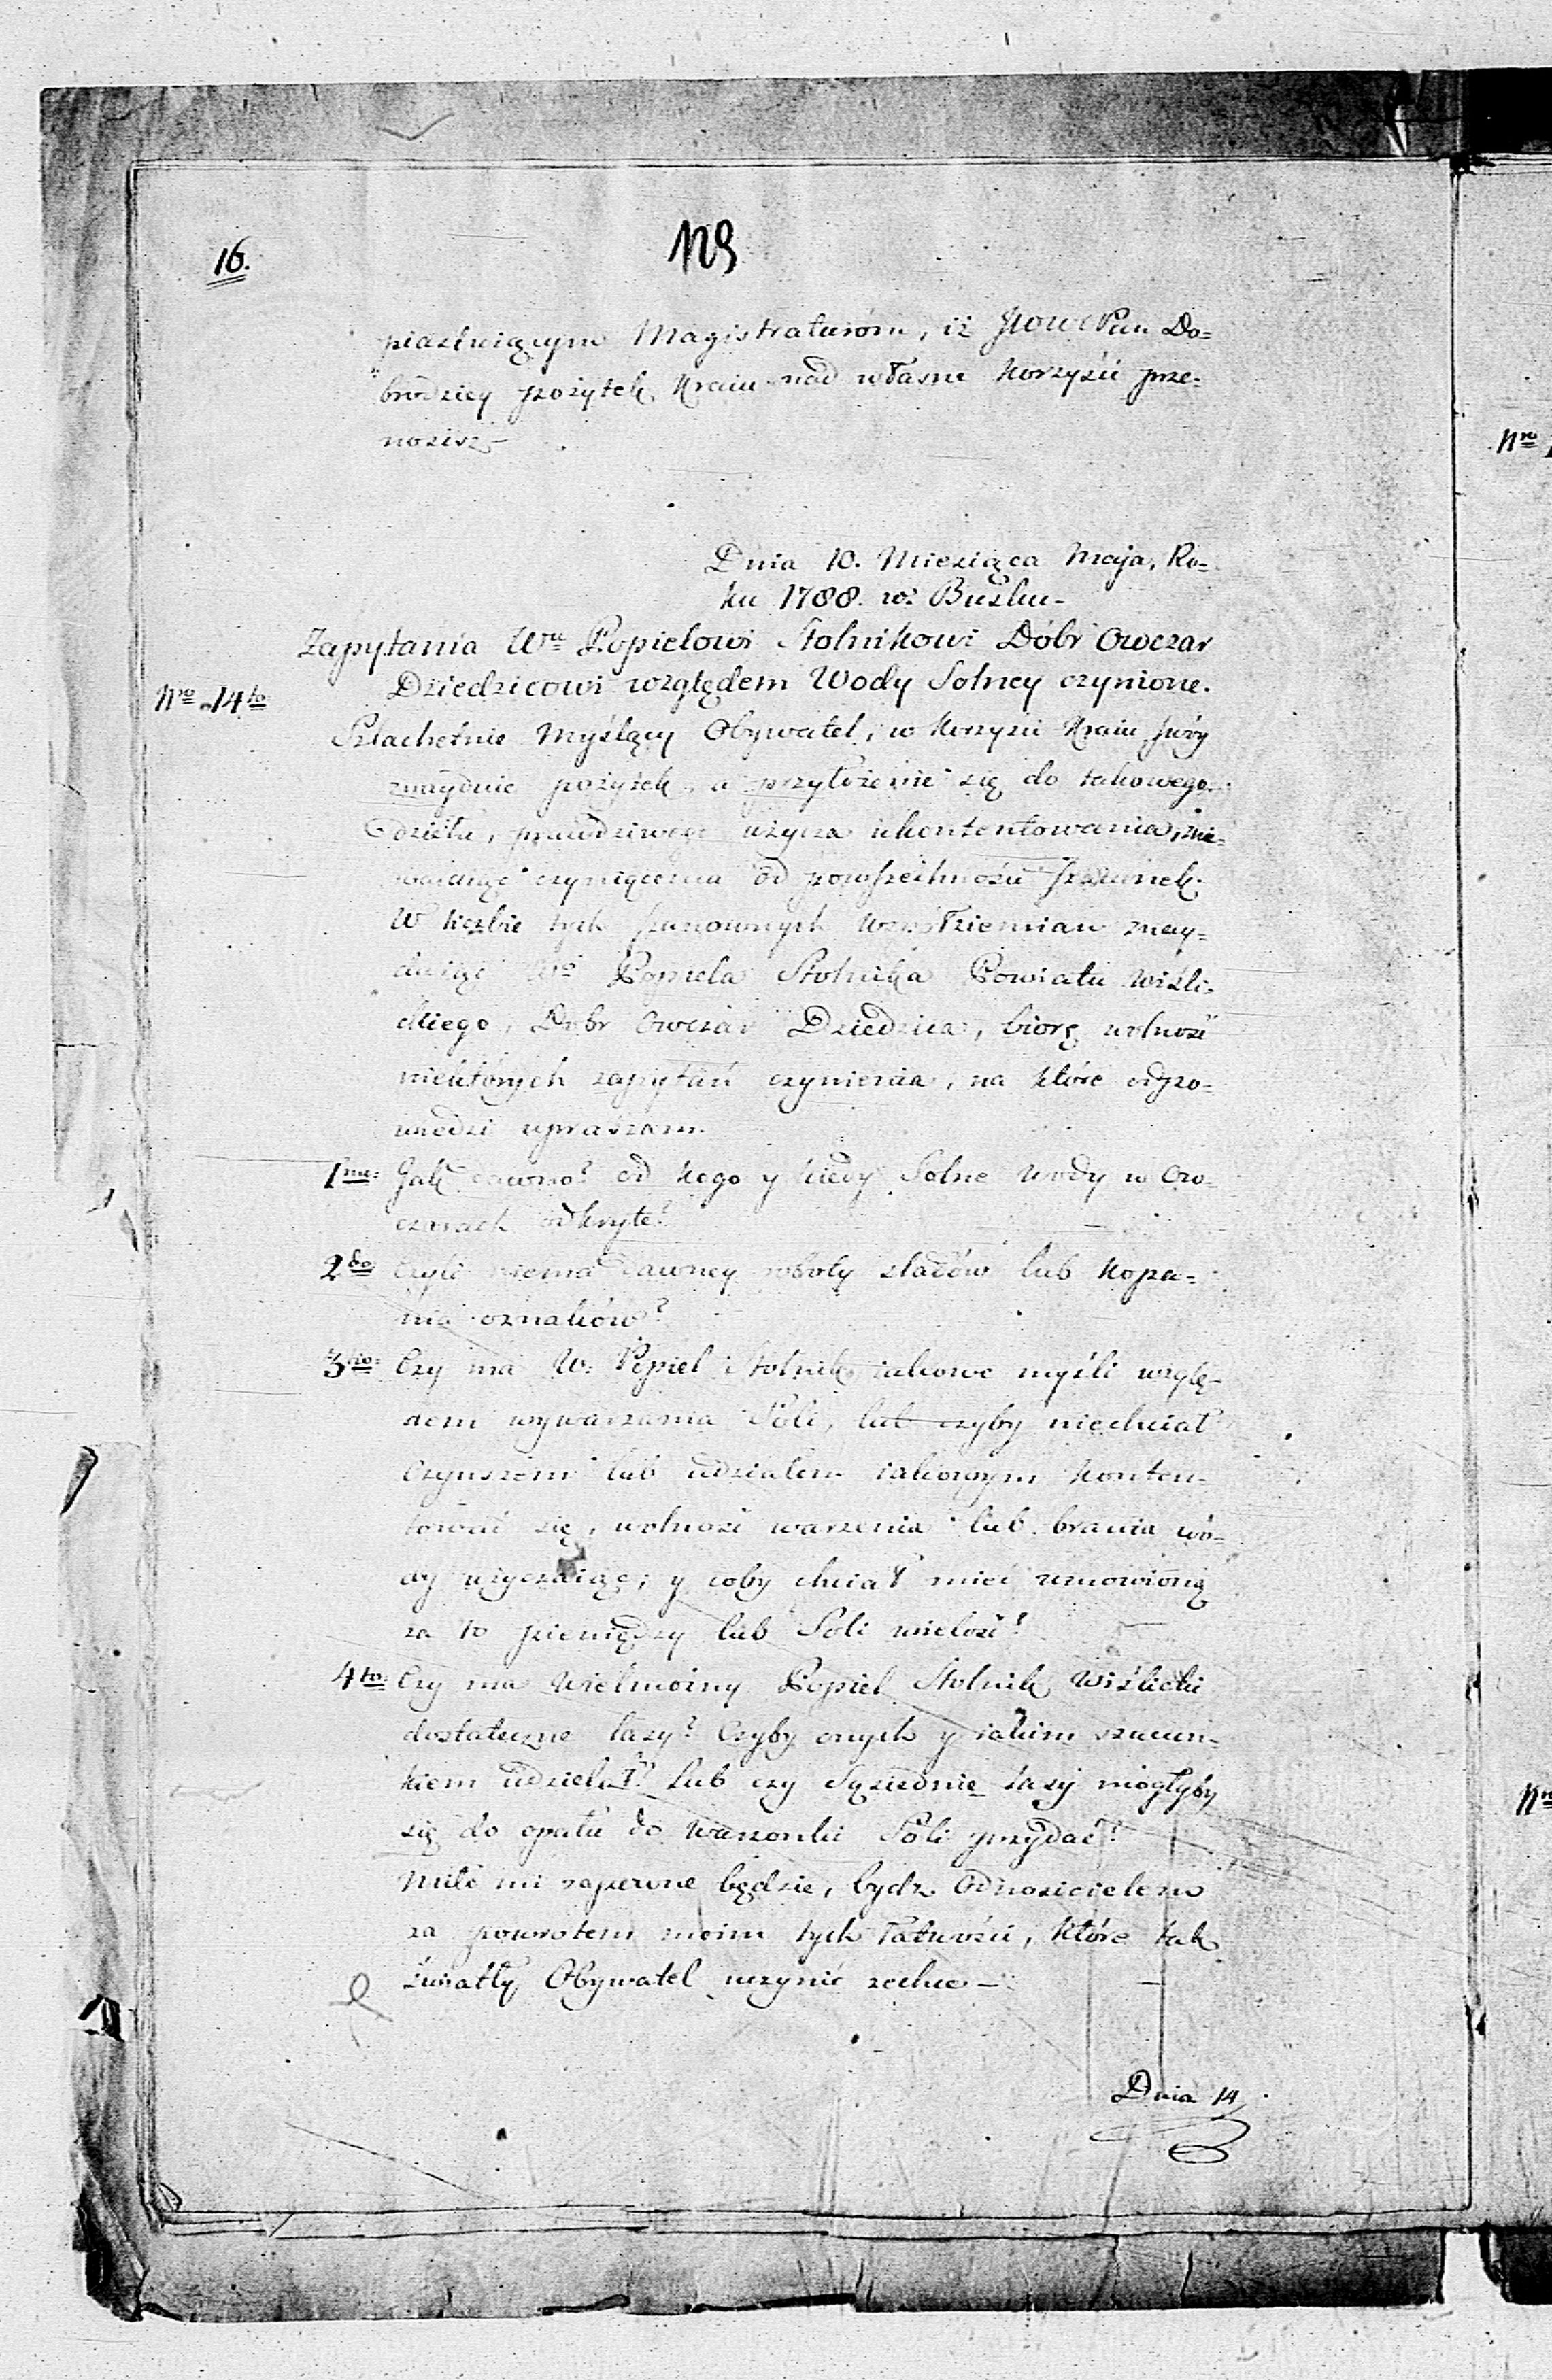 16.
129
piastuiącym Magistraturóm, iż JWWPan Do=
brodziey pożytek Kraiu nad własne Korzyści prze=
nosisz –
Dnia 10. Miesiąca Maja, Ro=
ku 1788. w: Busku –
Zapytania Wu Popielowi Stolnikowi Dóbr Owczar
Dziedzicowi względem Wody Solney czynione.
Nro 14to
Szlachetnie Myślący Obywatel, w Korzyści Kraiu swóy
znayduie pożytek, a przyłożenie się do takowego
dzieła, prawdziwego użycza ukontentowania,
czyniącemu od powszechności szacunek.
W liczbie tych szanownych Współziemian znay=
duiąc Wo Popiela Stolnika Powiatu Wiśli=
ckiego, Dobr Owczar Dziedzica, biorę wolność
niektórych zapytań czynienia, na które odpo=
wiedzi upraszam.
1mo: Jak dawno? od kogo y kiedy Solne wody w Ow=
czarach odkryte?
2do Czyli niema dawney roboty sladów lub kopa=
nia oznaków?
3tio: Czy ma W: Popiel Stolnik iakowe myśli wzglę=
dem wywarzania Soli, lub czyby niechciał
Czynszem lub udziałem iakowym konten=
tować się, wolność warzenia lub brania wo=
dy użyczaiąc; y coby chciał mieć umowioną
za to pieniędzy lub Soli wielość?
4to: Czy ma Wielmożny Popiel Stolnik Wiślicki
dostateczne lasy? Czyby onych y iakim szacun=
kiem udzielał? Lub czy Sąsiednie Lasy mogłyby
się do opału do Warzonki Soli przydać?
Miło mi zapewne będzie, bydz Odnosicielem
za powrotem moim tych łatwości, które tak
światły Obywatel uczynić zechce –
Dnia 14
Nro
Nro